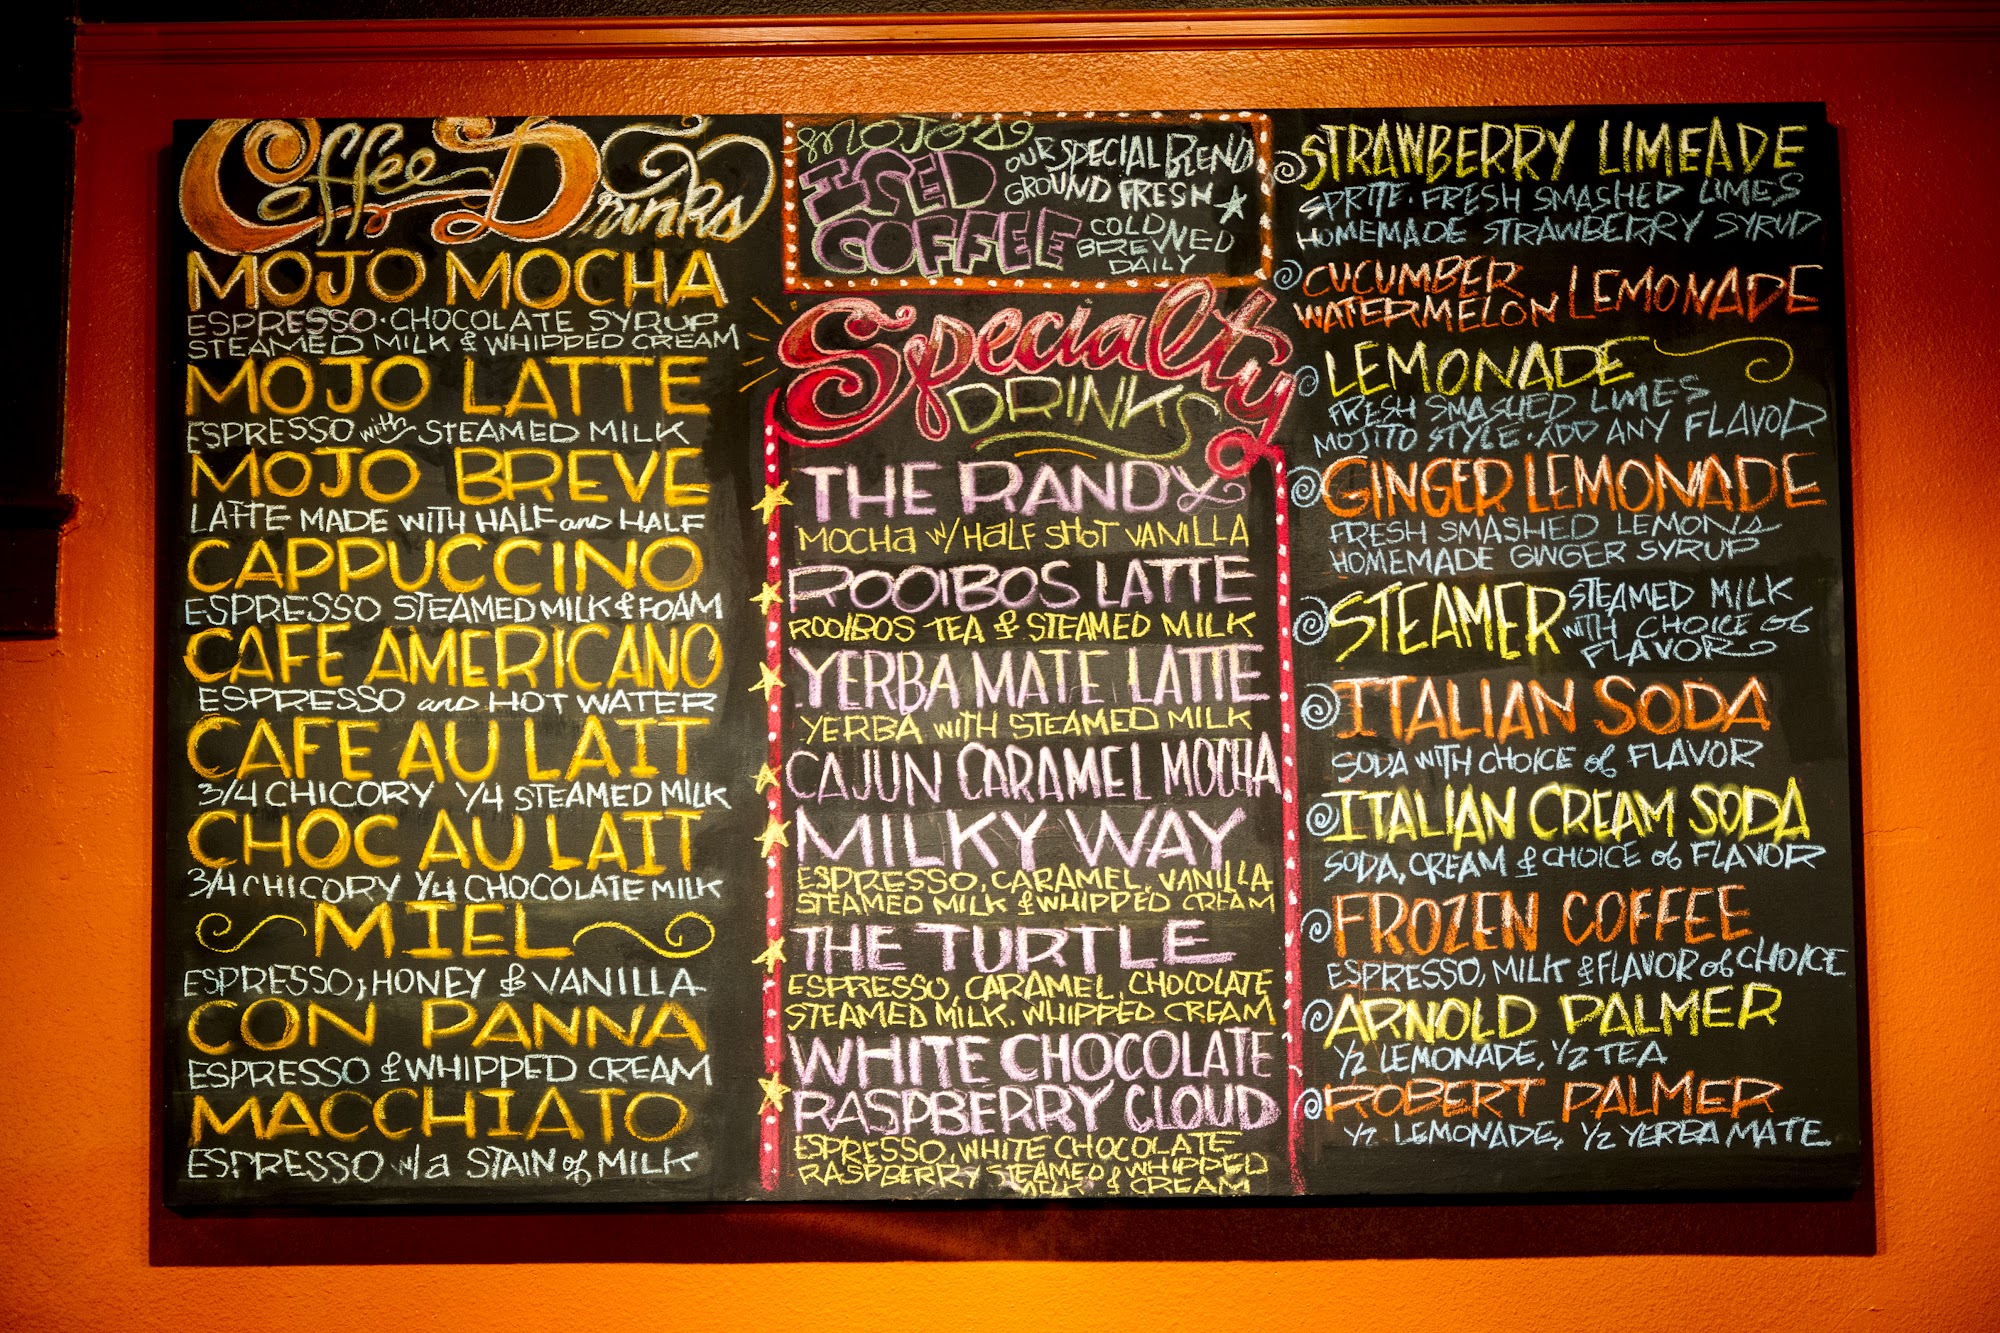 Coffee Drinks
MOJO MOCHA
ESPRESSO · CHOCOLATE SYRUP
STEAMED MILK & WHIPPED CREAM
MOJO LATTE
ESPRESSO with STEAMED MILK
MOJO BREVE
LATTE MADE WITH HALF and HALF
CAPPUCCINO
ESPRESSO STEAMED MILK & FOAM
CAFE AMERICANO
ESPRESSO and HOT WATER
CAFE AU LAIT
3/4 CHICORY 1/4 STEAMED MILK
CHOC AU LAIT
3/4 CHICORY 1/4 CHOCOLATE MILK
MIEL
ESPRESSO, HONEY & VANILLA
CON PANNA
ESPRESSO & WHIPPED CREAM
MACCHIATO
ESPRESSO w/a STAIN of MILK
MOJO'S
ICED
COFFEE
OUR SPECIAL BLEND
GROUND FRESH
COLD
BREWED
DAILY
Specialty
DRINKS
THE RANDY
MOCHA W/ HALF SHOT VANILLA
ROOIBOS LATTE
ROOIBOS TEA & STEAMED MILK
YERBA MATE LATTE
YERBA WITH STEAMED MILK
CAJUN CARAMEL MOCHA
MILKY WAY
ESPRESSO, CARAMEL, VANILLA
STEAMED MILK & WHIPPED CREAM
THE TURTLE
ESPRESSO, CARAMEL, CHOCOLATE
STEAMED MILK, WHIPPED CREAM
WHITE CHOCOLATE
RASPBERRY CLOUD
ESPRESSO, WHITE CHOCOLATE
RASPBERRY STEAMED & WHIPPED
MILK & CREAM
STRAWBERRY LIMEADE
SPRITE · FRESH SMASHED LIMES
HOMEMADE STRAWBERRY SYRUP
CUCUMBER
WATERMELON LEMONADE
LEMONADE
FRESH SMASHED LIMES
MOJITO STYLE · ADD ANY FLAVOR
GINGER LEMONADE
FRESH SMASHED LEMONS
HOMEMADE GINGER SYRUP
STEAMER
STEAMED MILK
WITH CHOICE of
FLAVOR
ITALIAN SODA
SODA WITH CHOICE of FLAVOR
ITALIAN CREAM SODA
SODA, CREAM & CHOICE of FLAVOR
FROZEN COFFEE
ESPRESSO, MILK & FLAVOR of CHOICE
ARNOLD PALMER
1/2 LEMONADE, 1/2 TEA
ROBERT PALMER
1/2 LEMONADE, 1/2 YERBA MATE